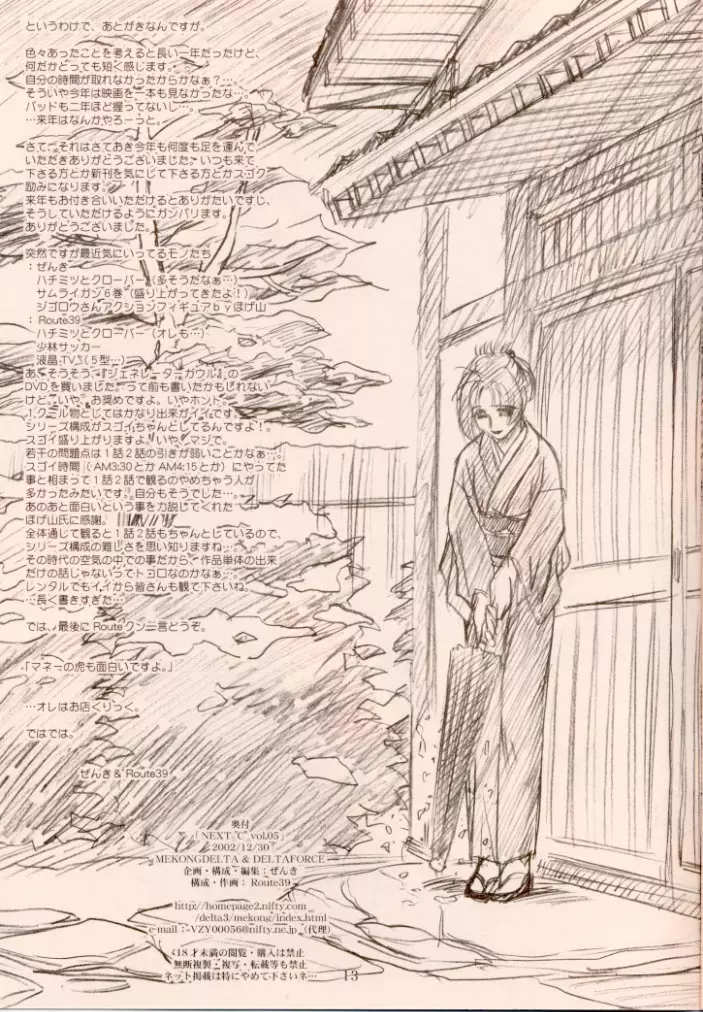 というわけで、あとがきなんですが。
色々あったことを考えると長い一年だったけど、
何だかとっても短く感じます。
自分の時間が取れなかったからかなぁ?…。
そういや今年は映画を一本も見なかったな…。
パッドも二年ほど握ってないし…。
…来年はなんかやろーっと。
さて、それはさておき今年も何度も足を運んで
いただきありがとうございました。いつも来て
下さる方とか新刊を気にして下さる方とかスゴク
励みになります。
来年もお付き合いいただけるとありがたいですし、
そうしていただけるようにガンバリます。
ありがとうございました。
突然ですが最近気にいってるモノたち
:ぜんき
ハチミツとクローバー(多そうだなぁ…)
サムライガン6巻(盛り上がってきたよ!)
ジゴロウさんアクションフィギュアbyほげ山
:Route39
ハチミツとクローバー(オレも…)
少林サッカー
液晶TV(5型…)
あ、そうそう、『ジェネレーターガウル』の
DVDを買いました。って前も書いたかもしれない
けど、いや、お奨めですよ。いやホント。
1クール物としてはかなり出来がイイです。
シリーズ構成がスゴイちゃんとしてるんですよ!。
スゴイ盛り上がりますよ。いや、マジで。
若干の問題点は1話2話の引きが弱いことかなぁ…。
スゴイ時間(AM3:30とかAM4:15とか)にやってた
事と相まって1話2話で観るのやめちゃう人が
多かったみたいです。自分もそうでした…。
あのあと面白いという事を力説してくれた
ほげ山氏に感謝。
全体通じて観ると1話2話もちゃんとしているので、
シリーズ構成の難しさを思い知りますね…。
その時代の空気の中での事だから、作品単体の出来
だけの話じゃないってトコロなのかなぁ…。
レンタルでもイイから皆さんも観て下さいね。
…長く書きすぎた…
では、最後にRouteクン一言どうぞ。
「マネーの虎も面白いですよ。」
…オレはお店くりっく。
ではでは。
ぜんき&Route39
奥付
「NEXT "C" vol.05」
2002/12/30
MEKONGDELTA & DELTAFORCE
企画・構成・編集:ぜんき
構成・作画:Route39
http://homepage2.nifty.com
/delta3/mekong/index.html
e-mail:VZY00056@nifty.ne.jp(代理)
18才未満の閲覧・購入は禁止
無断複製・複写・転載等も禁止
ネット掲載は特にやめて下さいネ…
13